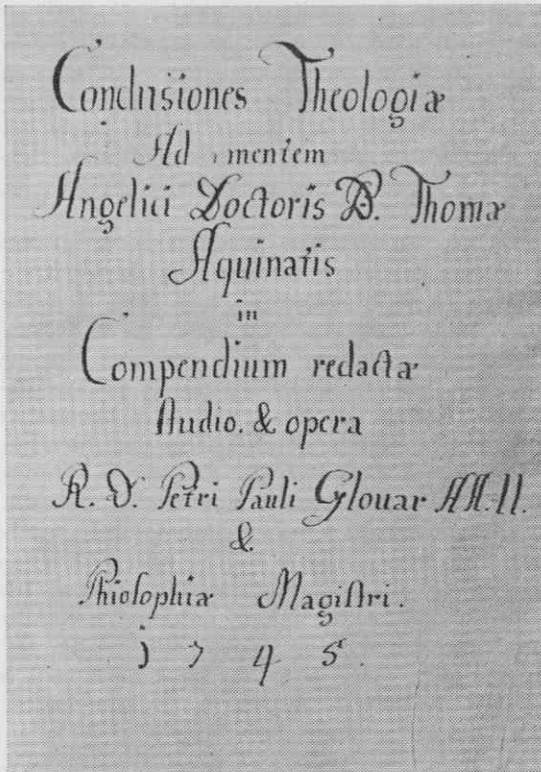 Conclusiones Theologiæ
Ad mentem
Angelici Doctoris B. Thomæ
Aquinatis
in
Compendium redactæ
studio. & opera
R. D. Petri Pauli Glouar AA. LL.
&
Phiosophiæ Magistri.
1745.